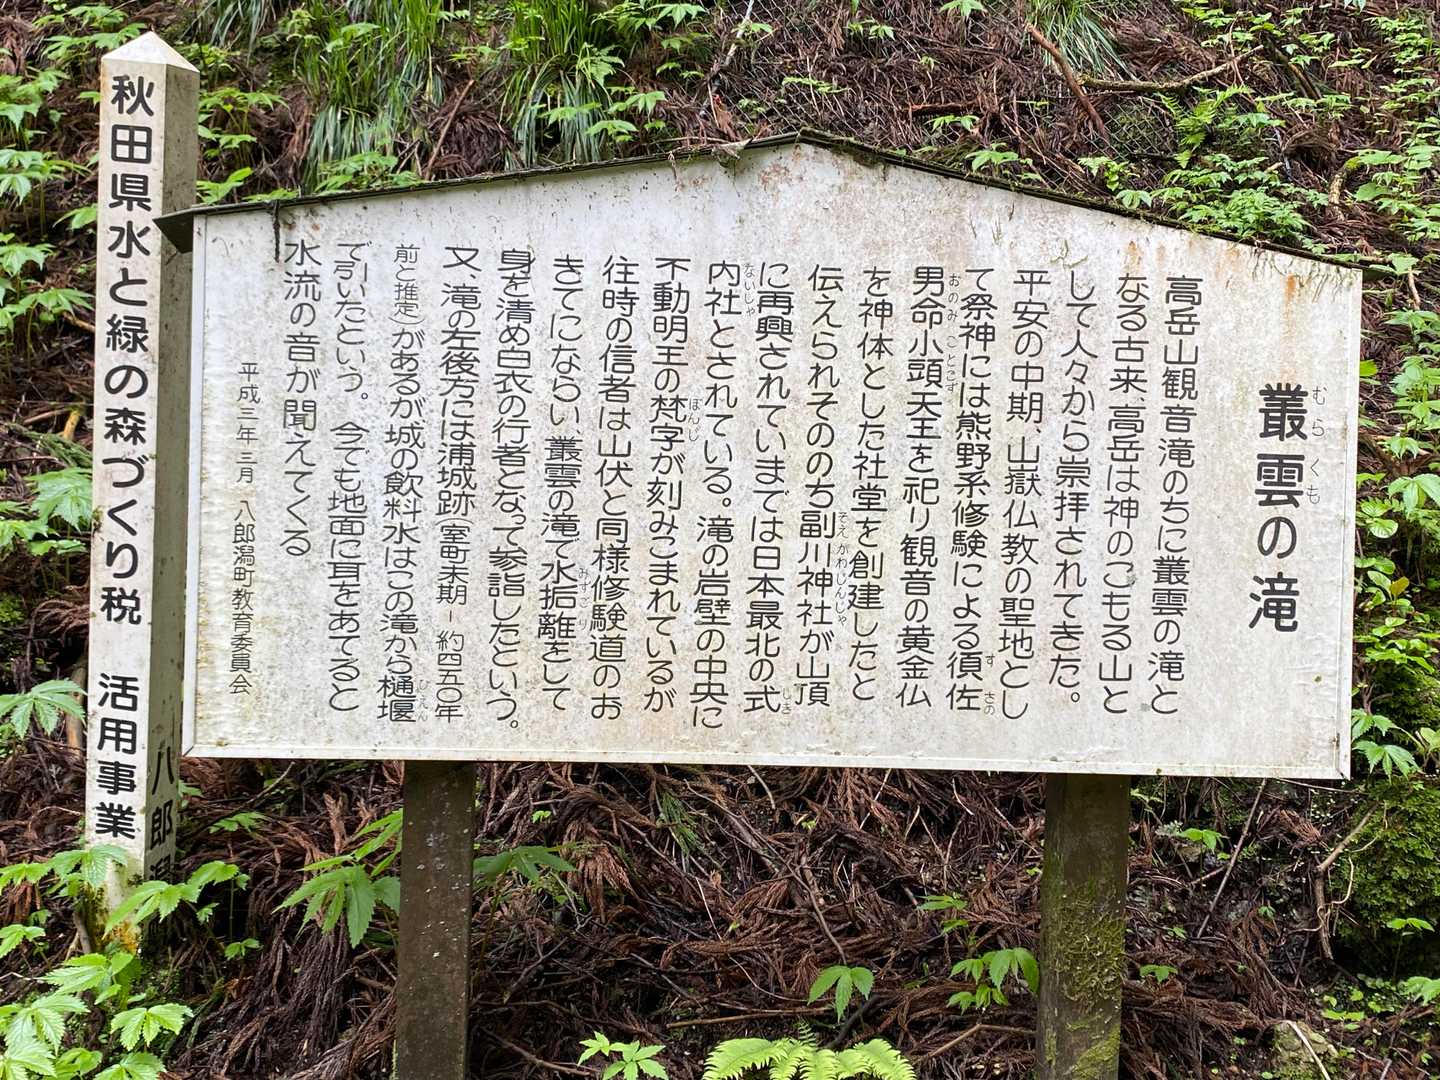 叢雲の滝
むらくも
高岳山観音滝のちに叢雲の滝と
なる古来、高岳は神のこもる山と
して人々から崇拝されてきた。
平安の中期、山嶽仏教の聖地とし
て祭神には熊野系修験による須佐
すさの
男命小頭天王を祀り観音の黄金仏
おのみことこず
を神体とした社堂を創建したと
伝えられそののち副川神社が山頂
そえがわじんじゃ
に再興されていまでは日本最北の式
しき
内社とされている。滝の岩壁の中央に
ないしゃ
不動明王の梵字が刻みこまれているが
ぼんじ
往時の信者は山伏と同様修験道のお
きてにならい、叢雲の滝で水垢離をして
みずごり
身を清め白衣の行者となって参詣したという。
又、滝の左後方には浦城跡(室町末期-約四五〇年
前と推定)があるが城の飲料水はこの滝から樋堰
ひえん
で引いたという。今でも地面に耳をあてると
水流の音が聞えてくる
平成三年三月 八郎潟町教育委員会
秋田県水と緑の森づくり税 活用事業
八郎